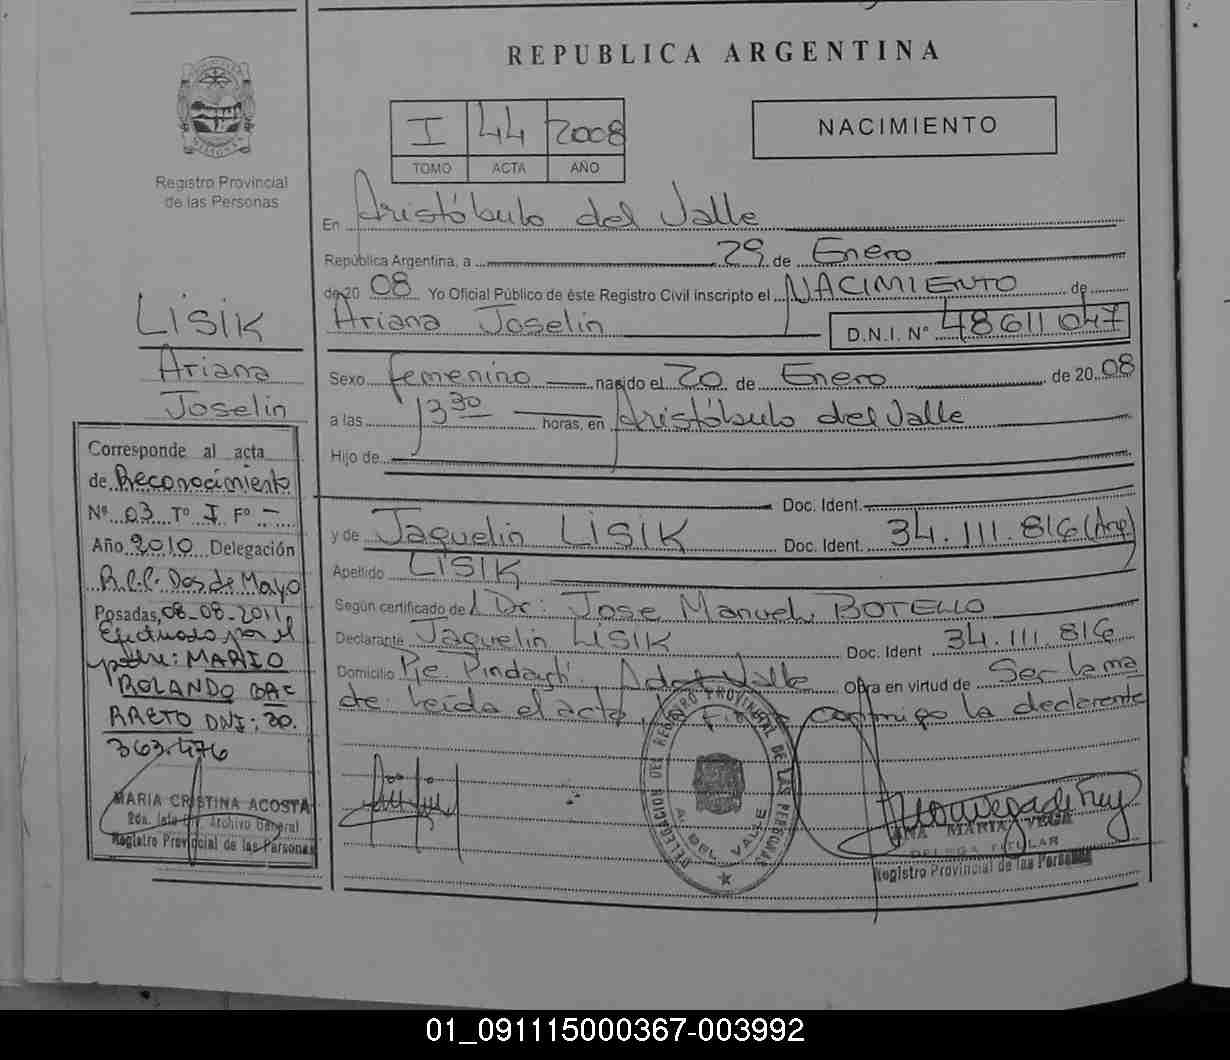 REPUBLICA ARGENTINA
I 44 2008
TOMO ACTA AÑO
NACIMIENTO
Registro Provincial
de las Personas
En Aristóbulo del Valle
República Argentina, a 29 de Enero
de 20 08 Yo Oficial Público de éste Registro Civil inscripto el NACIMIENTO de
Ariana Joselin D.N.I. N° 48611047
Sexo femenino nacido el 20 de Enero de 20 08
a las 13 30 horas, en Aristóbulo del Valle
Hijo de
Doc. Ident.
y de Jaquelin LISIK Doc. Ident. 34.111.816 (Arg)
Apellido LISIK
Según certificado de Dr: Jose Manuel BOTELLO
Declarante Jaquelin LISIK Doc. Ident 34.111.816
Domicilio Pje. Pindayti. A del Valle Obra en virtud de Ser la ma
dre leída el acta, firma conmigo la declarante
DELEGACION DEL REGISTRO PROVINCIAL DE LAS PERSONAS
A. DEL VALLE
ANA MARIA VEGA
DELEGA TITULAR
Registro Provincial de las Personas
LISIK
Ariana
Joselin
Corresponde al acta
de Reconocimiento
Nº 03 Tº I Fº -
Año 2010 Delegación
R.C.C. Dos de Mayo
Posadas, 08-08-2011
Efectuado por el
padre: MARIO
ROLANDO BAR
RRETO DNI: 20.
363.476
MARIA CRISTINA ACOSTA
2da. Jefe Archivo General
Registro Provincial de las Personas
01_091115000367-003992